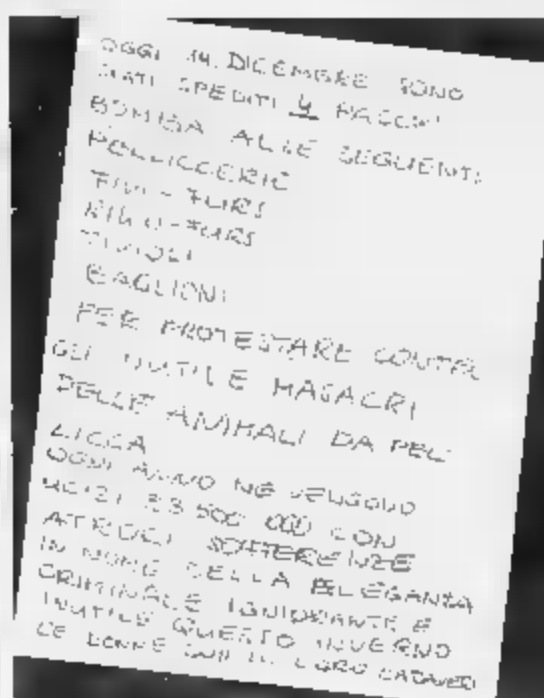 OGGI 14. DICEMBRE SONO
STATI SPEDITI 4 PACCHI
BOMBA ALLE SEGUENTI
PELLICCERIE
FIVI-FURS
FURS
TIVIOLI
BAGLIONI
PER PROTESTARE CONTRO
GLI INUTILE MASACRI
DELLE ANIMALI DA PEL
LICCA
OGNI ANNO NE VENGONO
UCIZI 23 500 000 CON
ATROCI SOFFERENZE
IN NOME DELLA ELEGANZA
CRIMINALE IGNIORANTE E
INUTILE QUESTO INVERNO
LE DONNE LORO CADAVERI